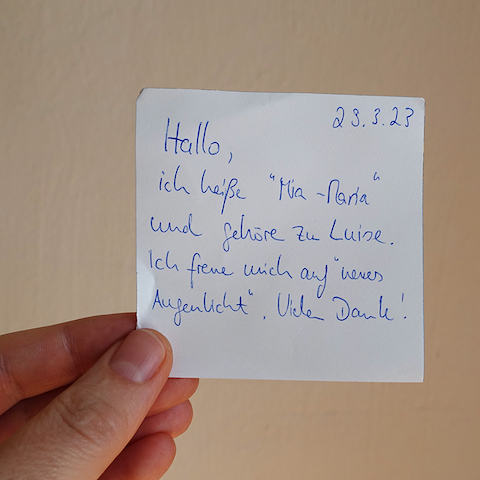 23.3.23
Hallo,
ich heiße "Mia-Maria"
und gehöre zu Luise.
Ich freue mich auf "neues
Augenlicht". Vielen Dank!